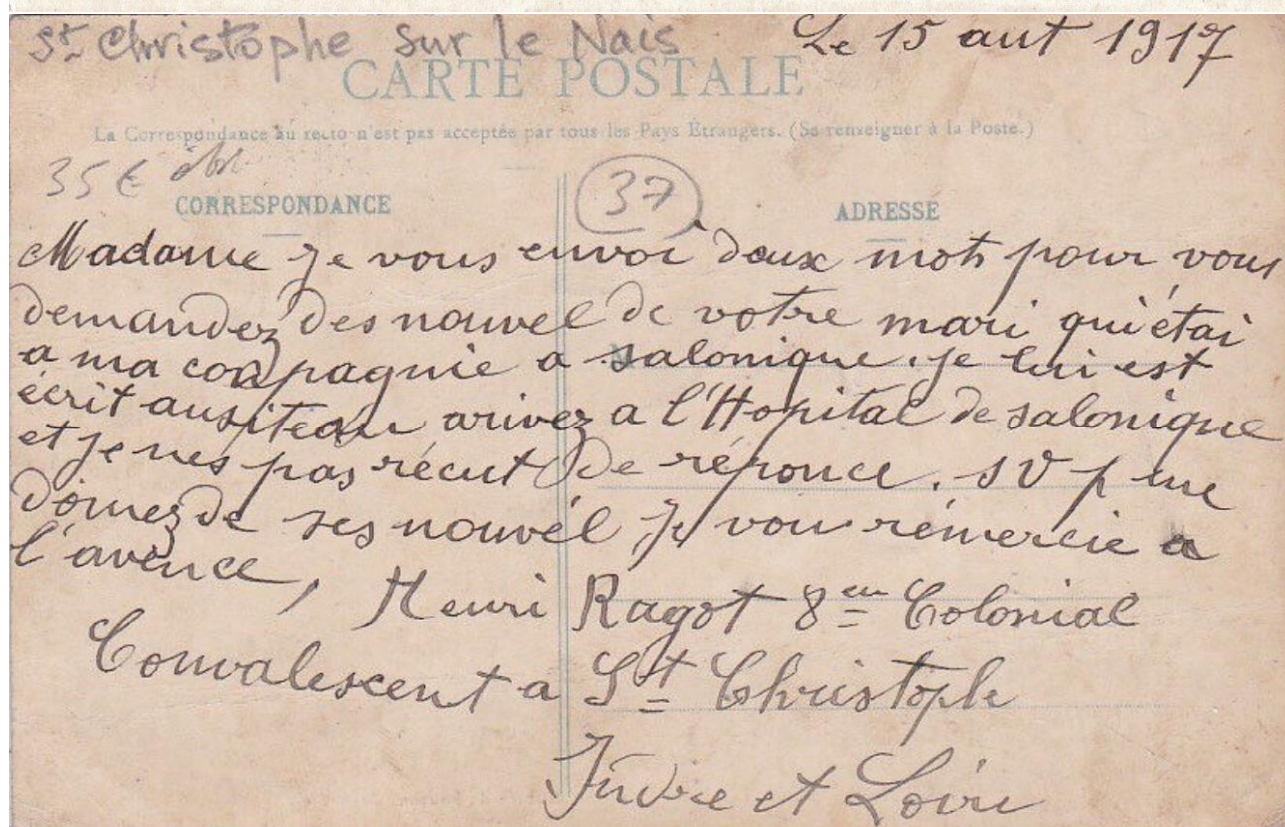 St Christophe sur le Nais Le 15 aut 1917
CARTE POSTALE
La Correspondance au recto n'est pas acceptée par tous les Pays Étrangers. (Se renseigner à la Poste.)
35 €
37
CORRESPONDANCE ADRESSE
Madame Je vous envoi deux mots pour vous
demandez des nouvel de votre mari qui étai
a ma compagnie a salonique. je lui est
écrit ausiteau arivez a l'Hopital de salonique
et je nes pas récut de réponce. s v p me
donnez de ses nouvél, Je vou rémercie a
l'avence,
Henri Ragot 8em Colonial
Convalescent a St Christophe
Indre et Loire